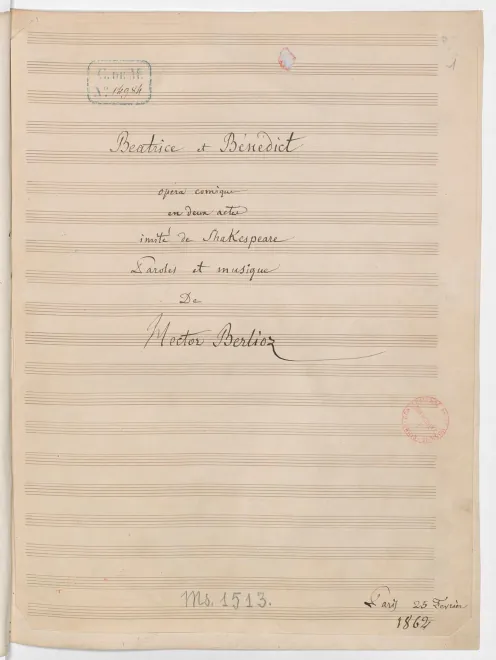 1
C. DE M.
N° 14984
Beatrice et Bénédict
opéra comique
en deux actes
imité de Shakespeare
Paroles et musique
De
Hector Berlioz
Ms. 1513.
Paris 25 Fevrier
1862